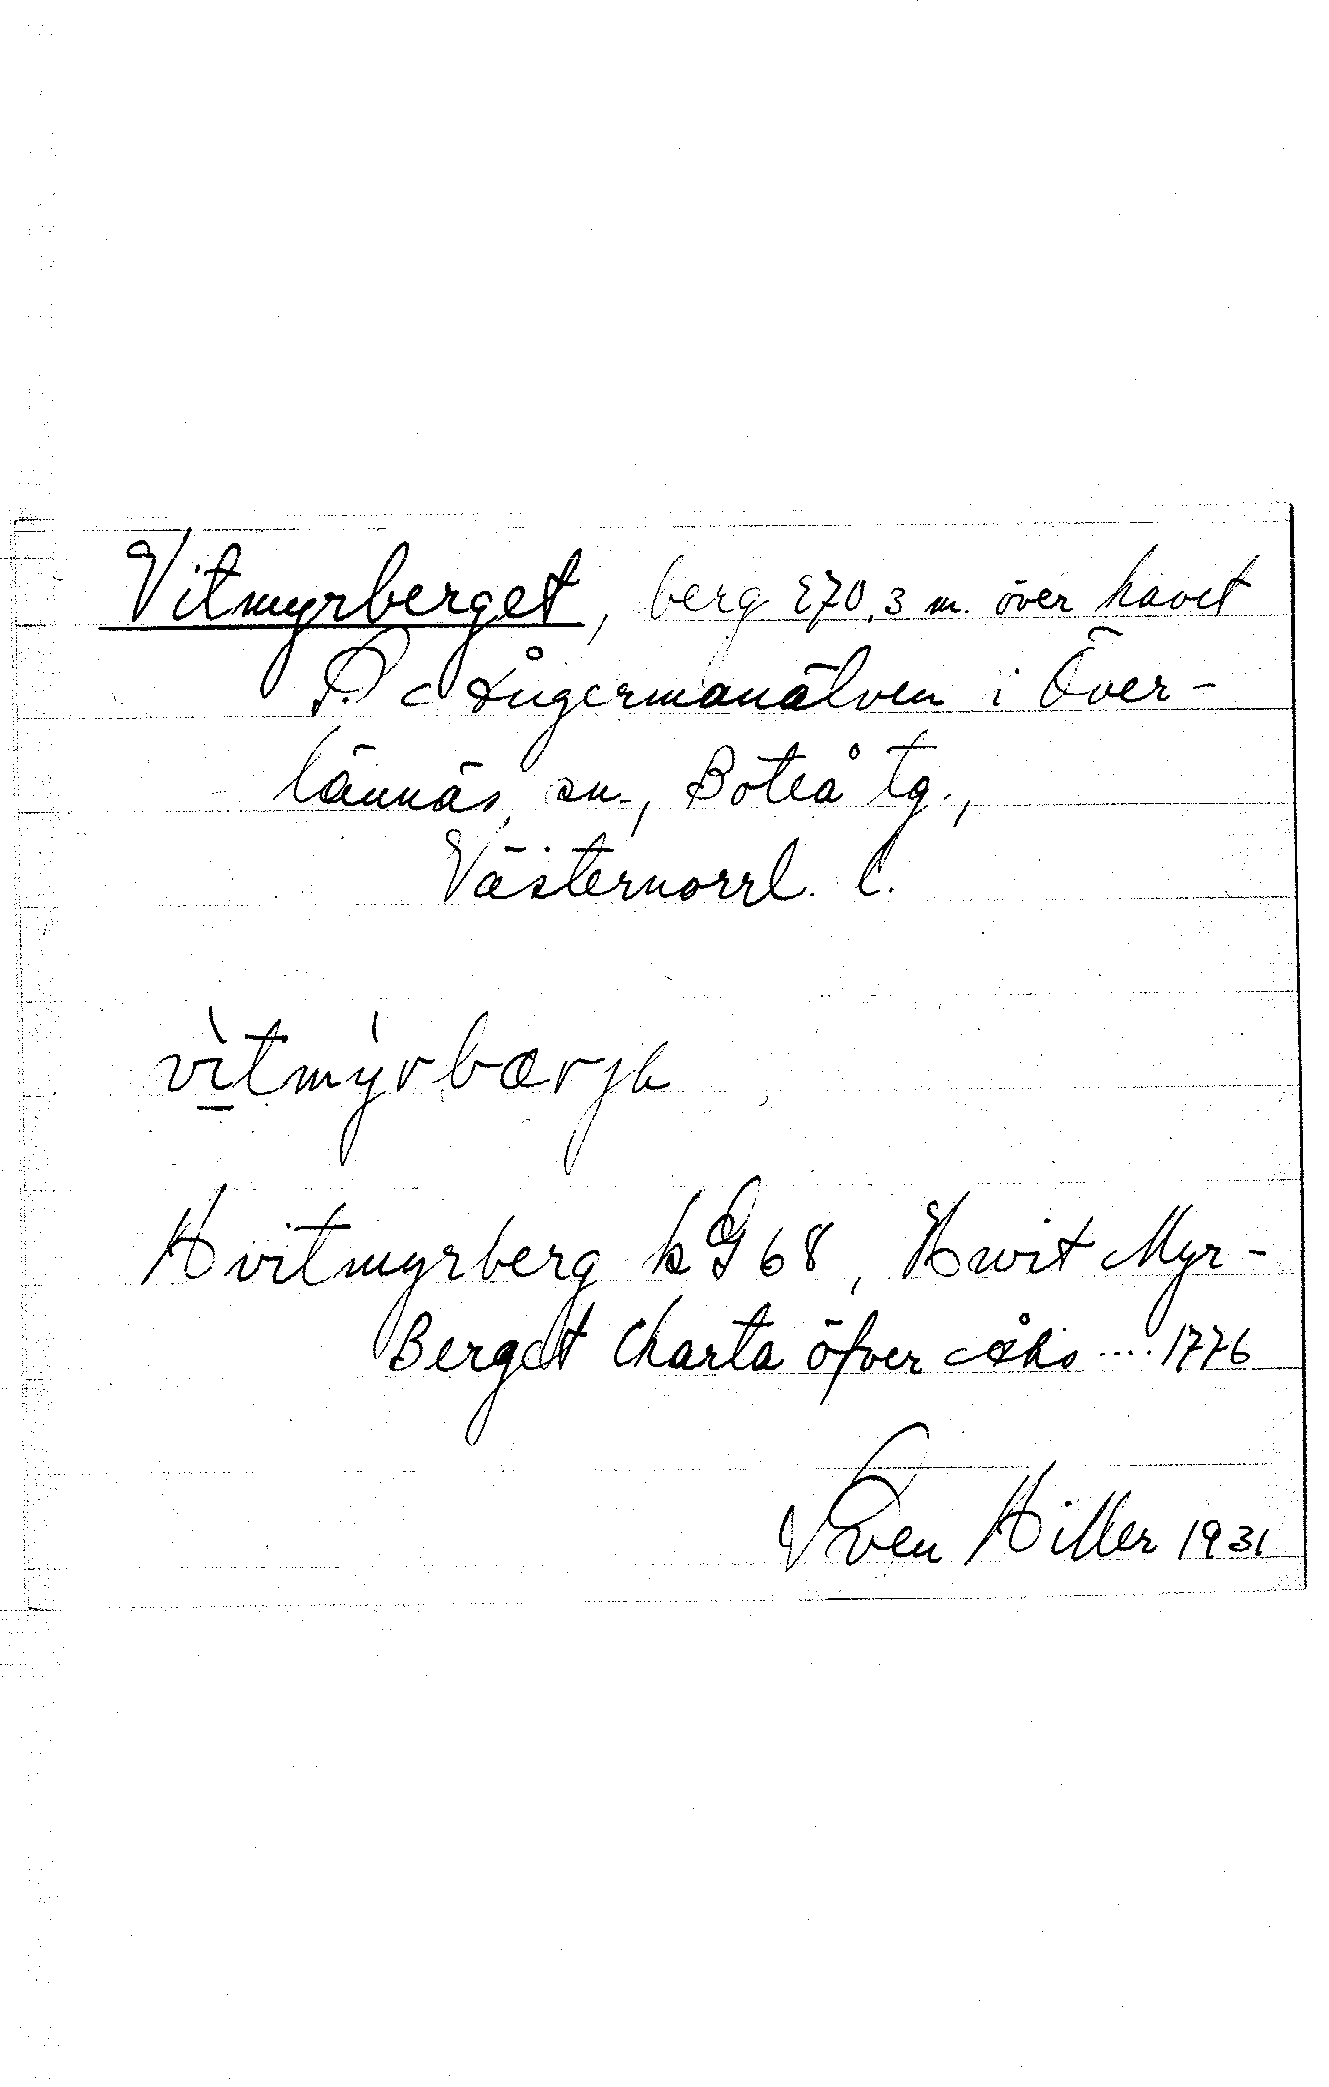 Vitmyrberget, berg 270,3 m. över havet
S. Ångermanälven i Över-
lännäs sn., Boteå tg.,
Västernorrl. l.
vìtmýrbærjɛ
Hvitmyrberg kG 68, Hwit Myr-
Berget Charta öfver 1776
Sven Hiller 1931